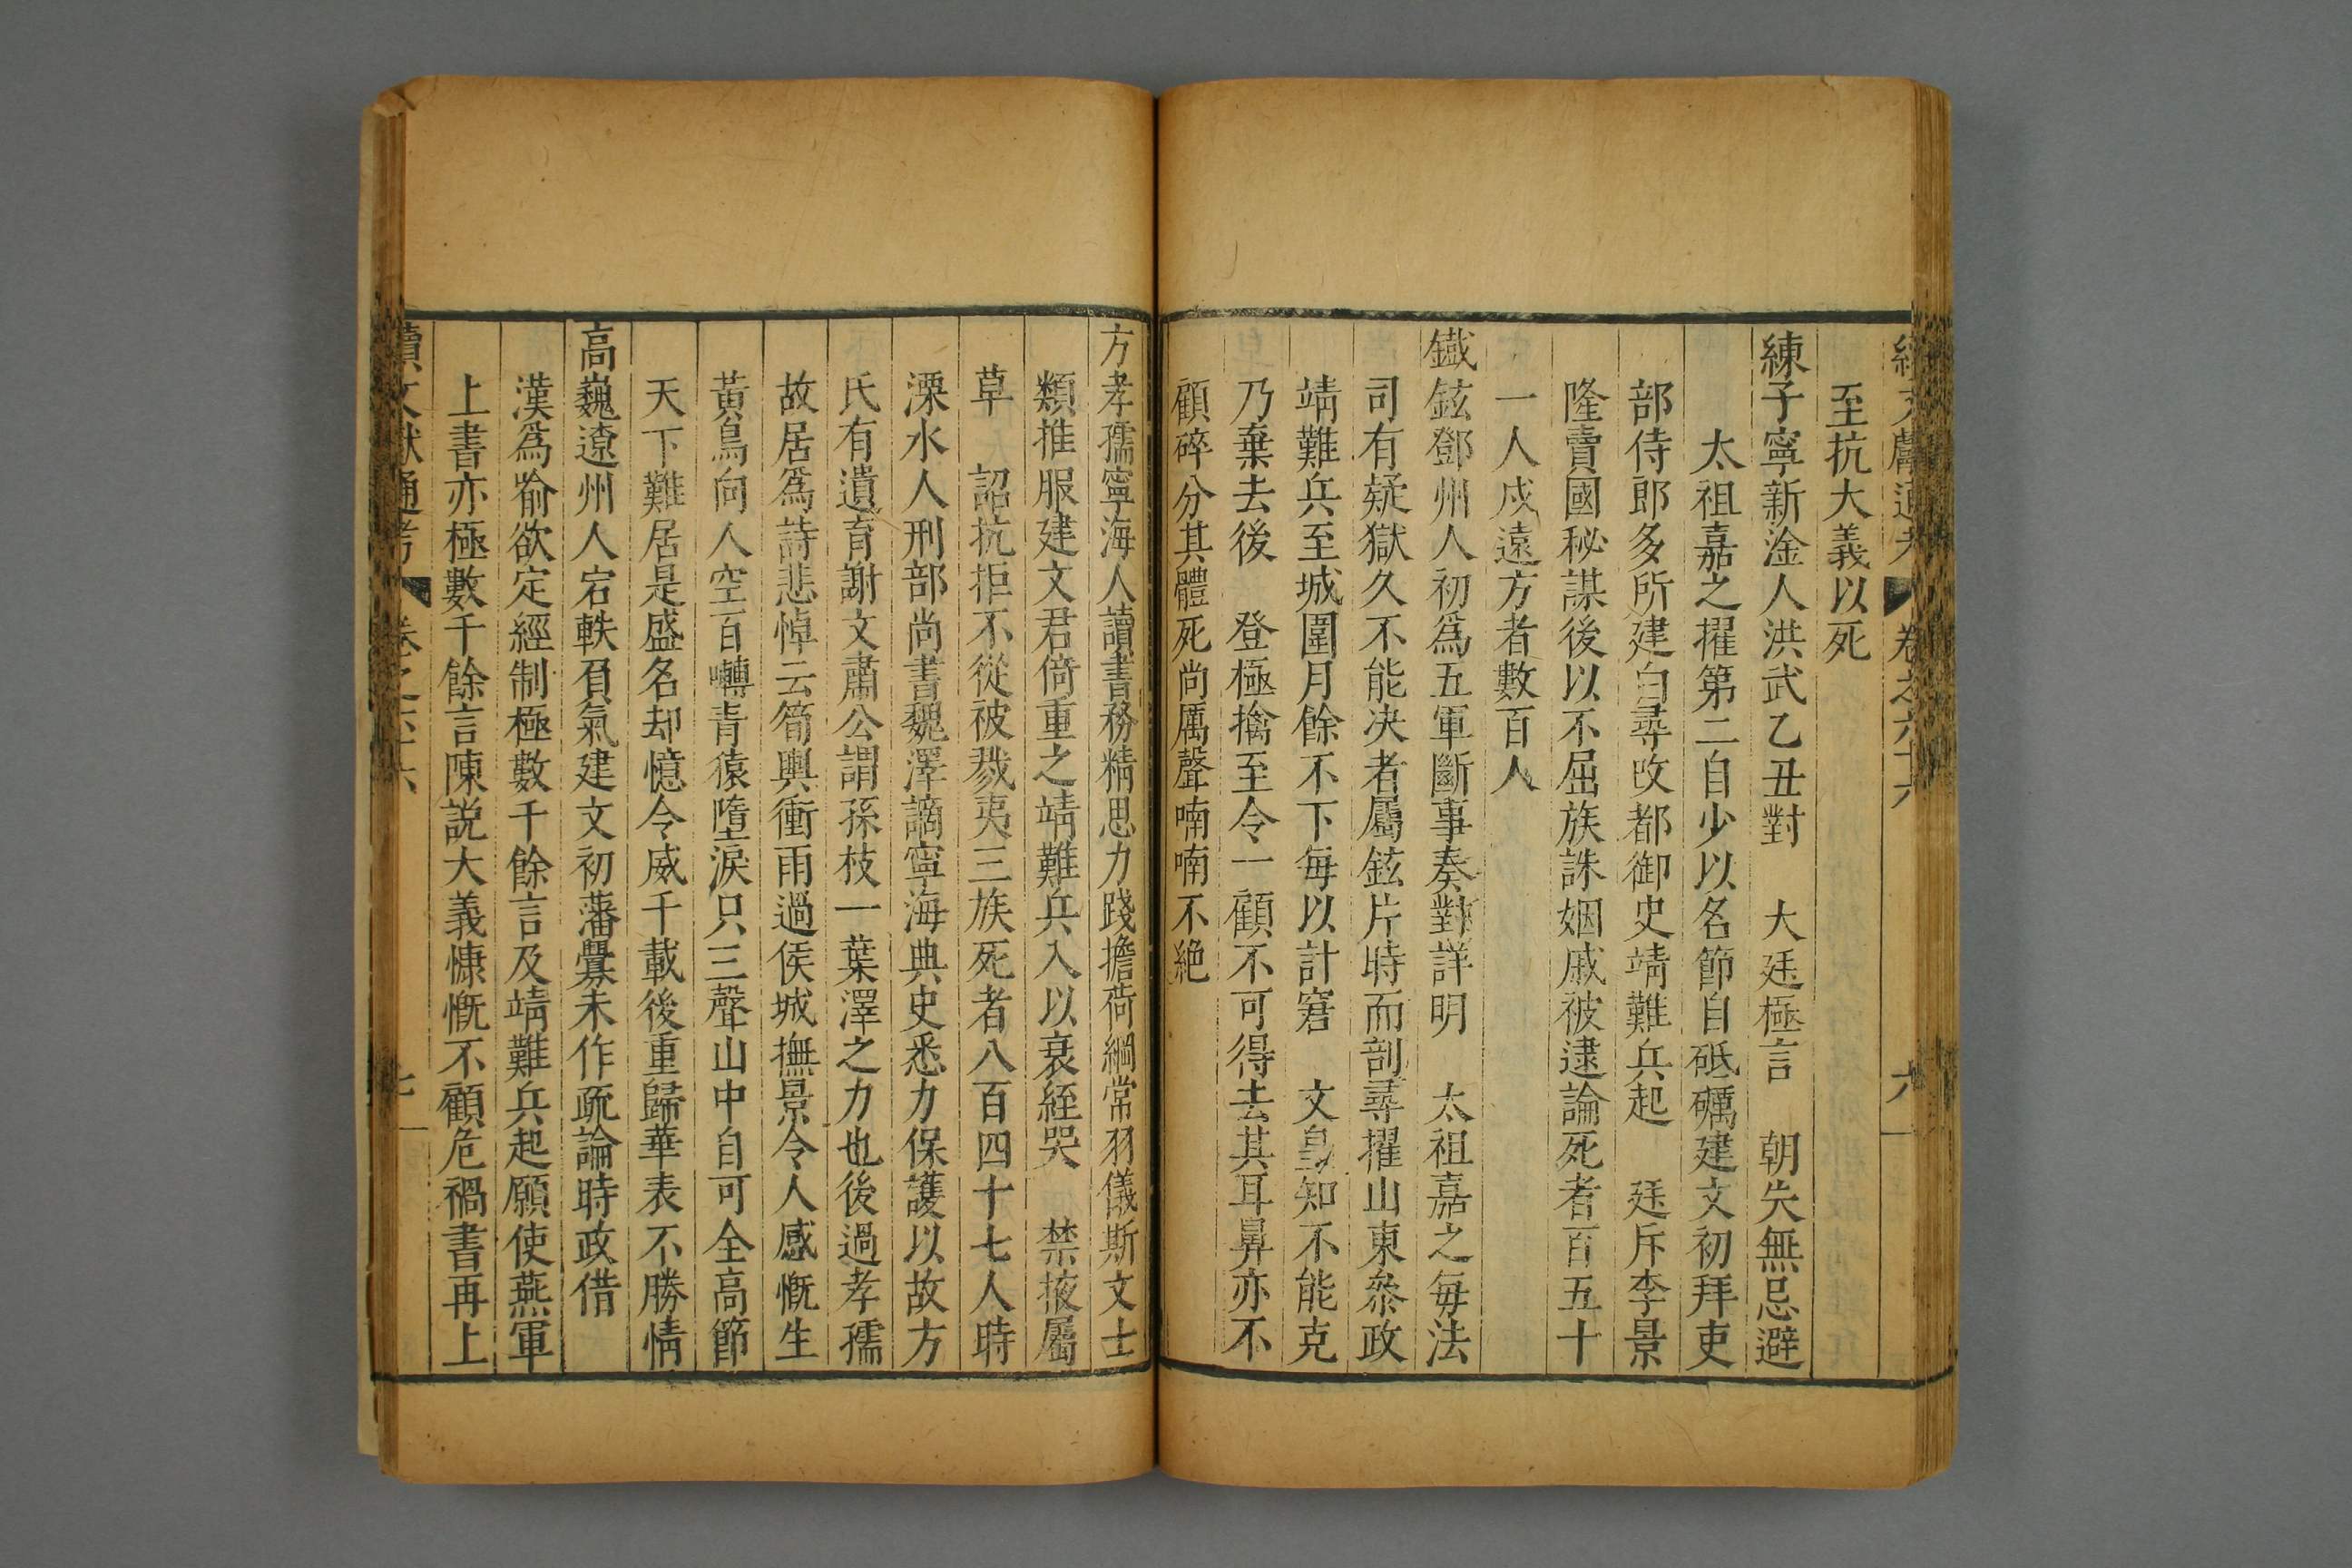 續文獻通考 卷之六十六 六
至抗大義以死
練子寧新淦人洪武乙丑對 大廷極言 朝失無忌避
太祖嘉之擢第二自少以名節自砥礪建文初拜吏
部侍郎多所建白尋改都御史靖難兵起 廷斥李景
隆賣國秘謀後以不屈族誅姻戚被逮論死者百五十
一人戍遠方者數百人
鐵鉉鄧州人初爲五軍斷事奏對詳明 太祖嘉之每法
司有疑獄久不能决者屬鉉片時而剖尋擢山東叅政
靖難兵至城圍月餘不下每以計窘 文皇知不能克
乃棄去後 登極擒至令一顧不可得去其耳鼻亦不
顧碎分其體死尚厲聲喃喃不絕
方孝孺寧海人讀書務精思力踐擔荷綱常羽儀斯文士
類推服建文君倚重之靖難兵入以衰絰哭 禁掖屬
草 詔抗拒不從被戮夷三族死者八百四十七人時
溧水人刑部尚書魏澤謫寧海典史悉力保護以故方
氏有遺育謝文肅公謂孫枝一葉澤之力也後過孝孺
故居爲詩悲悼云筍輿衝雨過侯城撫景令人感慨生
黃鳥向人空百囀青猿墮淚只三聲山中自可全高節
天下難居是盛名却憶令威千載後重歸華表不勝情
高巍遼州人宕軼負氣建文初藩釁未作疏論時政借
漢爲喻欲定經制極數千餘言及靖難兵起願使燕軍
上書亦極數千餘言陳説大義慷慨不顧危禍書再上
續文獻通考 卷之六十六 七